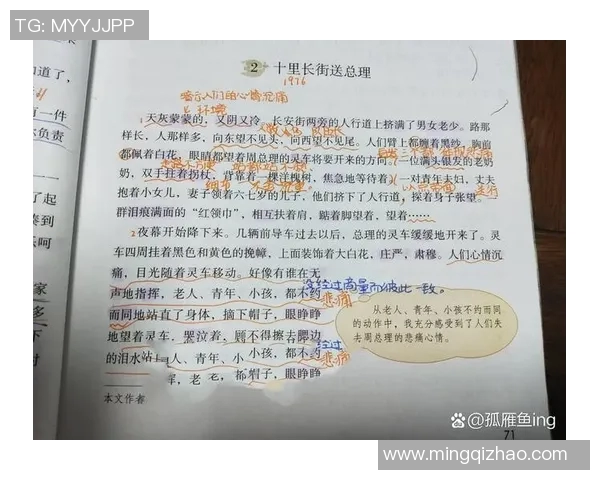 TG: MYYJJPP
道了，
有一件
尔负责
起
奏到
快呵
家
多
下
2 十里长街送总理
1976
暗示人们的心情沉痛
环境
1天灰蒙蒙的，又阴又冷。长安街两旁的人行道上挤满了男女老少。路那
样长，人那样多，向东望不见头，向西望不见尾。人们臂上都缠着黑纱，胸前
都佩着白花，眼睛都望着周总理的灵车将要开来的方向。一位满头银发的老奶
奶，双手拄着拐杖，背靠着一棵洋槐树，焦急地等待着。一对青年夫妇，丈夫
抱着小女儿，妻子领着六七岁的儿子，他们挤下了人行道，探着身子张望。
群泪痕满面的“红领巾”，相互扶着肩，踮着脚望着，望着……
2夜幕开始降下来。几辆前导车过去以后，总理的灵车缓缓地开来了。灵
车四周挂着黑色和黄色的挽幛，上面装饰着大白花，庄严，肃穆。人们心情沉
痛，目光随着灵车移动。好像有谁在无
没经过商量而彼此一致。
声地指挥，老人、青年、小孩，都不约
悲痛
而同地站直了身体，摘下帽子，眼睁睁
地望着灵车，哭泣着，顾不得擦去腮边
的泪水站
人、青年、小孩，都不约
经过
悲痛
挥，老
帽子，眼睁睁
从老人、青年、小孩不约而同
的动作中，我充分感受到了人们失
去周总理的悲痛心情。
本文作者
71
孤雁鱼ing
www.mingqizhao.com